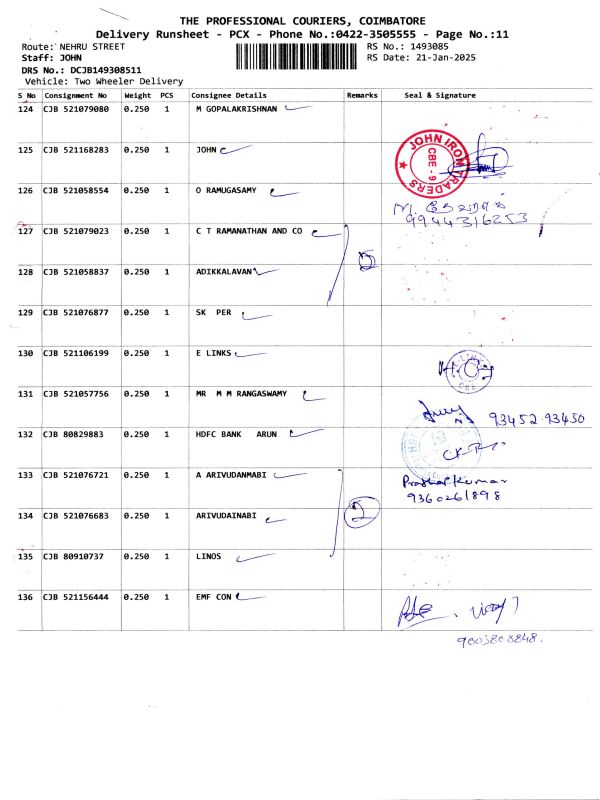 THE PROFESSIONAL COURIERS, COIMBATORE
Delivery Runsheet - PCX - Phone No.:0422-3505555 - Page No.:11
Route: NEHRU STREET
RS No.: 1493085
Staff: JOHN
RS Date: 21-Jan-2025
DRS No.: DCJB149308511
Vehicle: Two Wheeler Delivery
S No Consignment No Weight PCS Consignee Details Remarks Seal & Signature
124 CJB 521079080 0.250 1 M GOPALAKRISHNAN
125 CJB 521168283 0.250 1 JOHN
JOHN IRON TRADERS CBE - 9
126 CJB 521058554 0.250 1 O RAMUGASAMY
9944316253
127 CJB 521079023 0.250 1 C T RAMANATHAN AND CO
2
128 CJB 521058837 0.250 1 ADIKKALAVAN
129 CJB 521076877 0.250 1 SK PER
130 CJB 521106199 0.250 1 E LINKS
131 CJB 521057756 0.250 1 MR M M RANGASWAMY
93452 93450
132 CJB 80829883 0.250 1 HDFC BANK ARUN
133 CJB 521076721 0.250 1 A ARIVUDANMABI
Kumar
9360261898
134 CJB 521076683 0.250 1 ARIVUDAINABI
2
135 CJB 80910737 0.250 1 LINOS
136 CJB 521156444 0.250 1 EMF CON
9003808248.